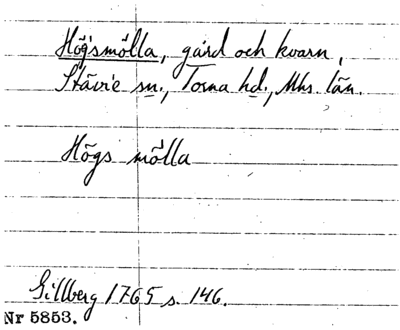 Högsmölla, gård och kvarn,
Stävie sn., Torna hd., Mhs. län.
Högs mölla
Gillberg 1765 s. 146.
Nr 5853.